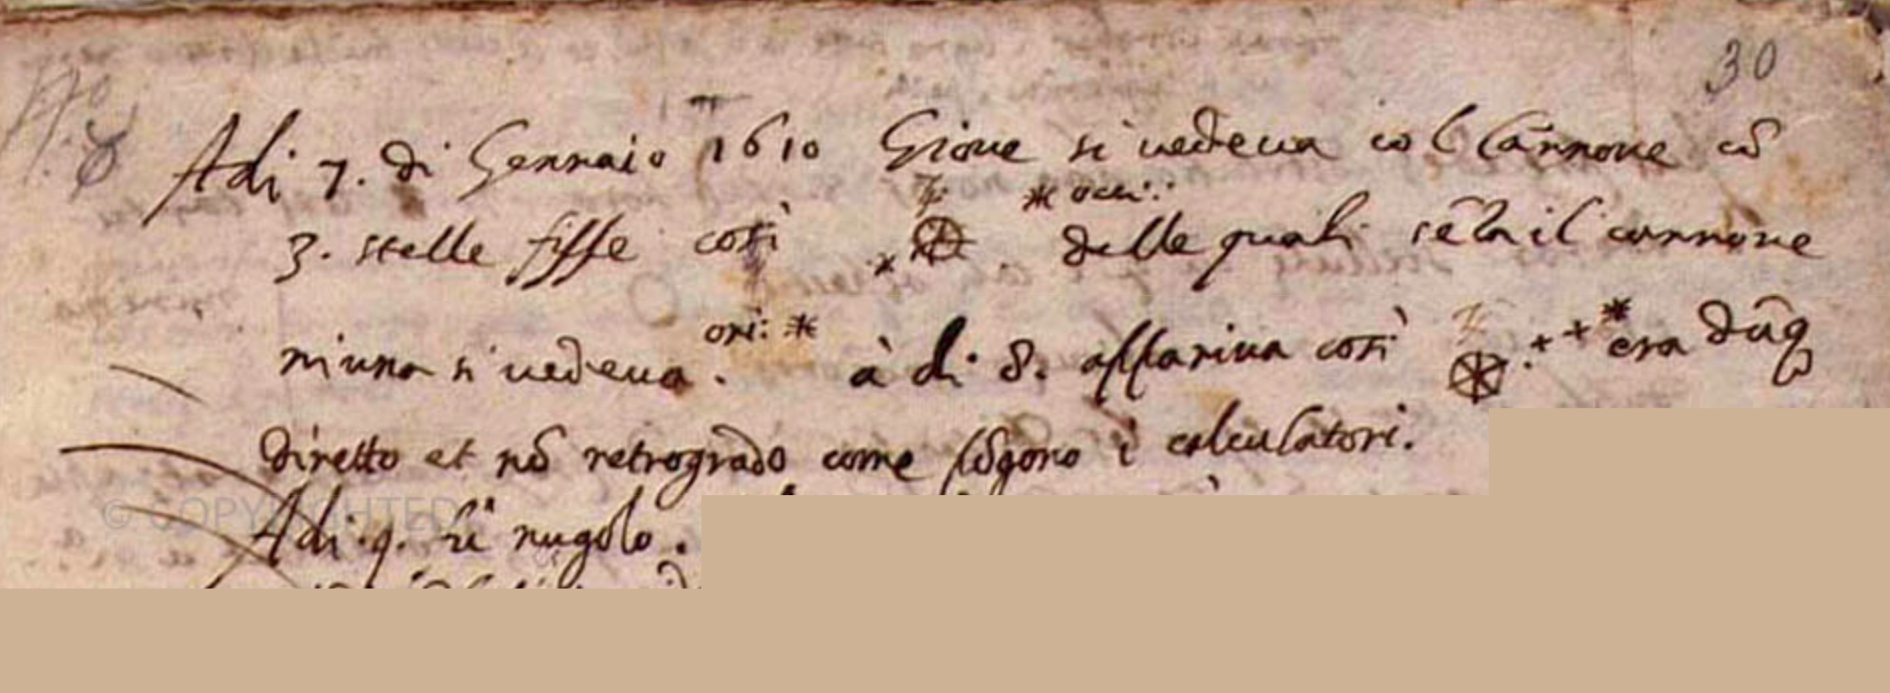 30
Adi 7. di Gennaio 1610 Giove si vedeva col Cannone cō
3. stelle fisse così * occi: delle quali sēza il cannone
niuna si vedeva. ori: * à dì 8. appariva così * era dūq
diretto et nō retrogrado come pōgono i calculatori.
Adi 9. fù nugolo.
© COPYRIGHTED